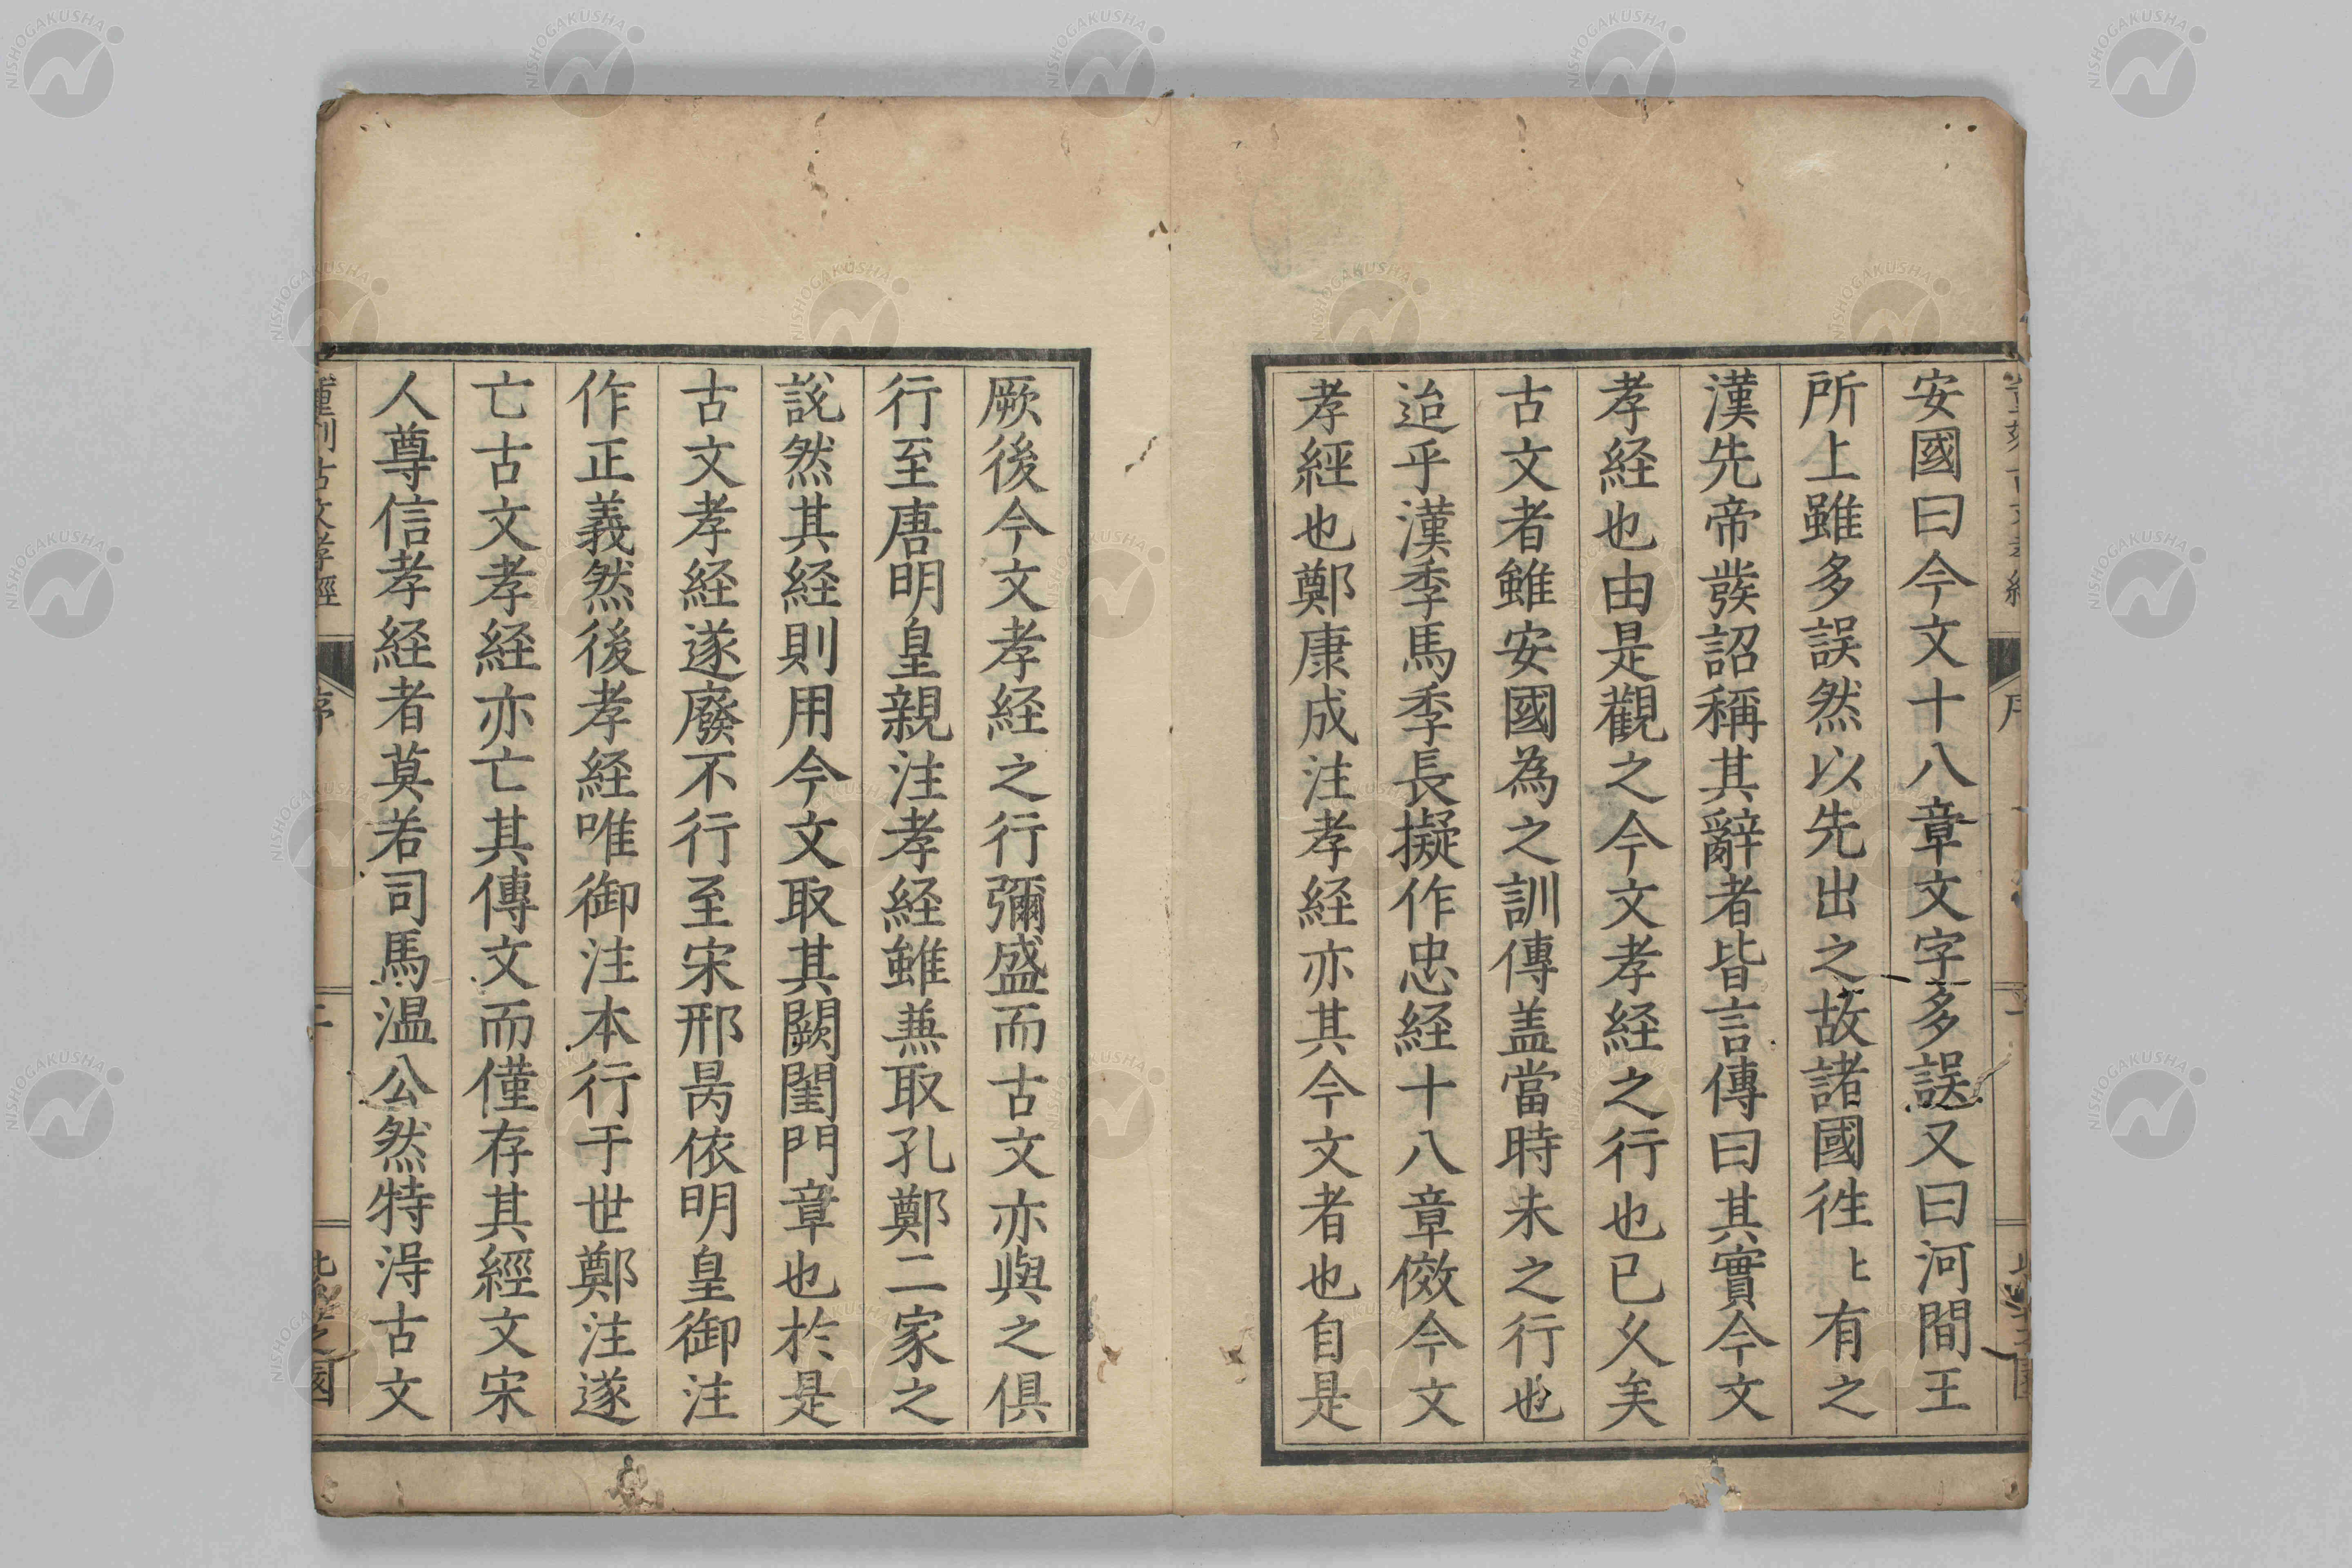 安國曰今文十八章文字多誤又曰河間王
所上雖多誤然以先出之故諸國徃〻有之
漢先帝發詔稱其辭者皆言傳曰其實今文
孝経也由是觀之今文孝経之行也已久矣
古文者雖安國為之訓傳盖當時未之行也
迨乎漢季馬季長擬作忠経十八章倣今文
孝經也鄭康成注孝経亦其今文者也自是
厥後今文孝経之行彌盛而古文亦與之俱
行至唐明皇親注孝経雖兼取孔鄭二家之
說然其経則用今文取其闕閨門章也於是
古文孝経遂廢不行至宋邢昺依明皇御注
作正義然後孝経唯御注本行于世鄭注遂
亡古文孝経亦亡其傳文而僅存其經文宋
人尊信孝経者莫若司馬温公然特淂古文
重刻古文孝經
序
NISHOGAKUSHA